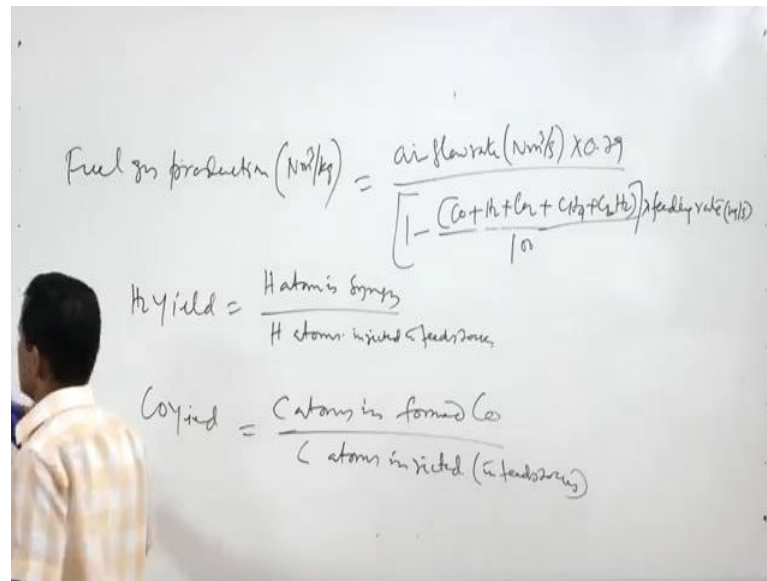 Fuel gas production (Nm³/kg) = air flow rate (Nm³/s) X 0.79
[1 - (CO + H2 + CO2 + CH4 + C2H2) / 100] x feeding rate (kg/s)
H2 Yield = H atom in Syngas
H atoms injected in feedstocks
CO Yield = C atoms in formed CO
C atoms injected (in feedstocks)